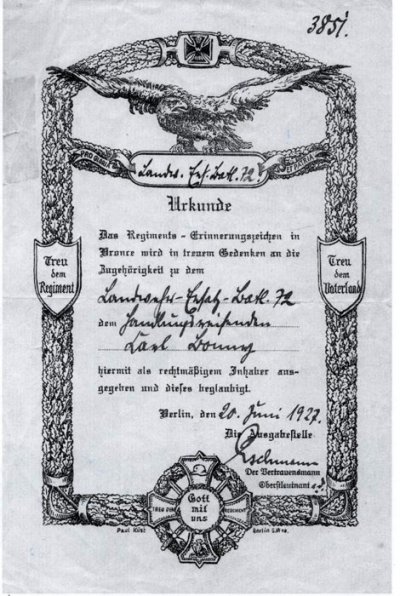 3851.
PRO GLORIA
ET PATRIA
Landw. Ers. Batl. 72
Urkunde
Das Regiments-Erinnerungszeichen in
Bronce wird in treuem Gedenken an die
Zugehörigkeit zu dem
Landwehr-Ersatz-Batl. 72
den Handlungsreisenden
Karl Bonny
hiermit als rechtmäßigem Inhaber aus-
gegeben und dieses beglaubigt.
Treu
dem
Regiment
Treu
dem
Vaterland
Berlin, den 20. Juni 1927.
Die Ausgabestelle
Der Vertrauensmann
Oberstleutnant a.D.
Gott
mit
uns
TREU DEM
REGIMENT
Paul Küst
Berlin